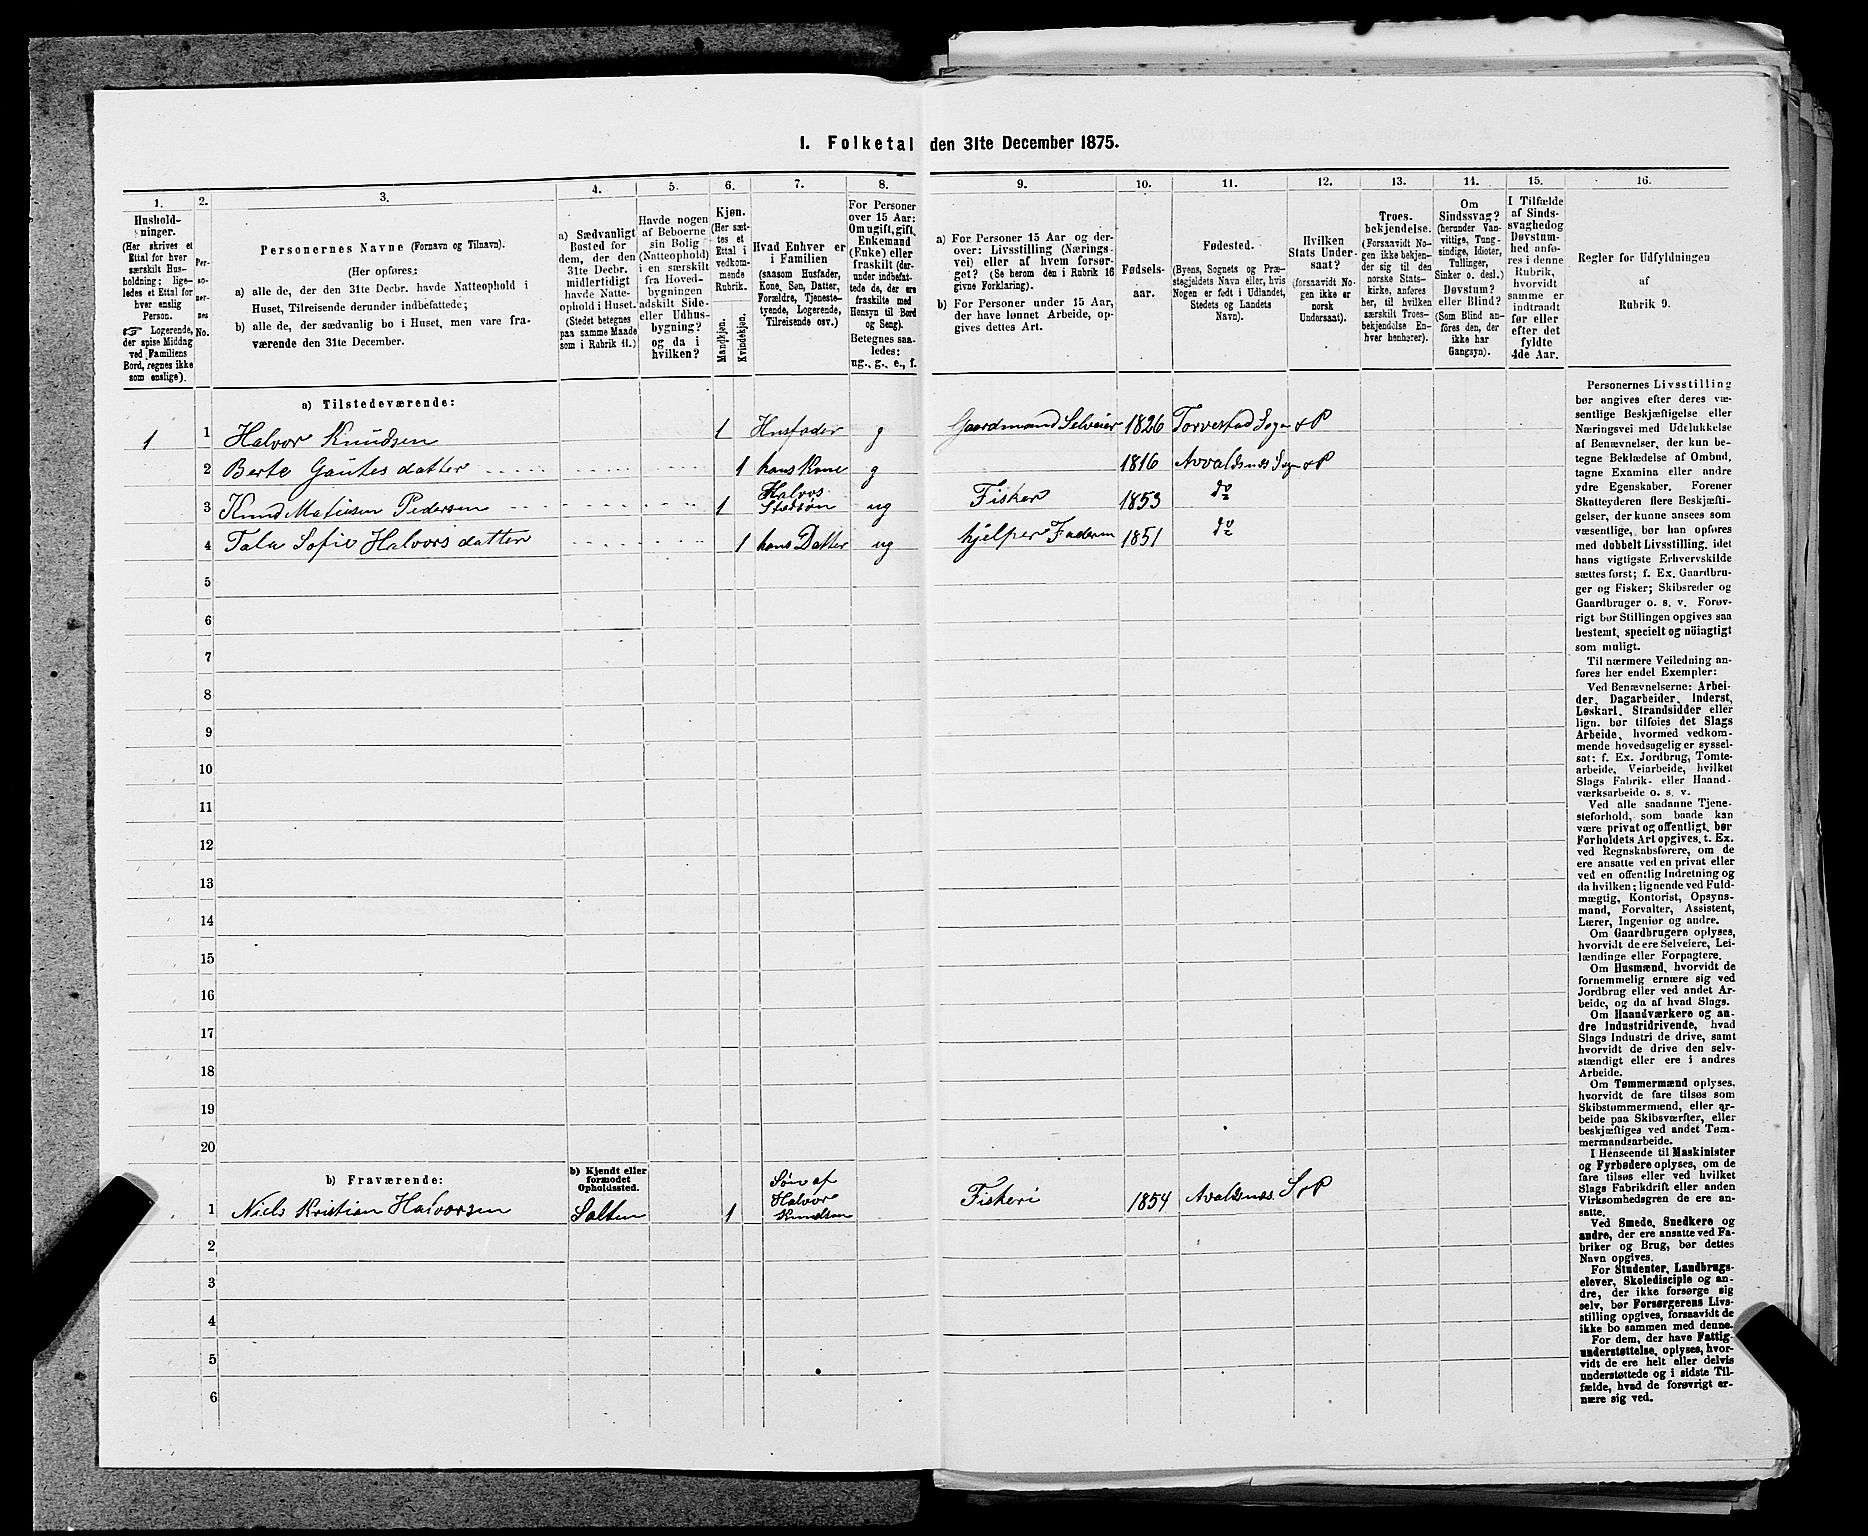 I. Folketal den 31te December 1875.
1.
Hushold-
ninger.
(Her skrives et
Ettal for hver
særskilt Hus-
holdning; lige-
ledes et Ettal for
hver enslig
Person.
☞ Logerende,
der spise Middag
ved Familiens
Bord, regnes ikke
som enslige).
2.
Per-
so-
ner-
nes
No.
3.
Personernes Navne (Fornavn og Tilnavn).
(Her opføres:
a) alle de, der den 31te Decbr. havde Natteophold i
Huset, Tilreisende derunder indbefattede;
b) alle de, der sædvanlig bo i Huset, men vare fra-
værende den 31te December.
4.
a) Sædvanligt
Bosted for
dem, der den
31te Decbr.
midlertidigt
havde Natte-
ophold i Huset.
(Stedet betegnes
paa samme Maade
som i Rubrik 11.)
5.
Havde nogen
af Beboerne
sin Bolig
(Natteophold)
i en særskilt
fra Hoved-
bygningen
adskilt Side-
eller Udhus-
bygning?
og da i
hvilken?
6.
Kjøn.
(Her sæt-
tes et
Ettal i
vedkom-
mende
Rubrik.
Mandkjøn.
Kvindekjøn.
7.
Hvad Enhver er
i Familien
(saasom Husfader,
Kone, Søn, Datter,
Forældre, Tjeneste-
tyende, Logerende,
Tilreisende osv.)
8.
For Personer
over 15 Aar:
Om ugift, gift,
Enkemand
(Enke) eller
fraskilt (der-
under indbefat-
tede de, der ere
fraskilte med
Hensyn til Bord
og Seng).
Betegnes saa-
ledes:
ug., g., e., f.
9.
a) For Personer 15 Aar og der-
over: Livsstilling (Nærings-
vei) eller af hvem forsør-
get? (Se herom den i Rubrik 16
givne Forklaring).
b) For Personer under 15 Aar,
der have lønnet Arbeide, op-
gives dettes Art.
10.
Fødsels-
aar.
11.
Fødested.
(Byens, Sognets og Præ-
stegjeldets Navn eller, hvis
Nogen er født i Udlandet,
Stedets og Landets
Navn).
12.
Hvilken
Stats Under-
saat?
(forsaavidt No-
gen ikke er
norsk
Undersaat).
13.
Troes-
bekjendelse.
(Forsaavidt No-
gen ikke bekjen-
der sig til den
norske Stats-
kirke, anføres
her, til hvilken
særskilt Troes-
bekjendelse En-
hver henhører).
14.
Om
Sindssvag?
(herunder Van-
vittige, Tung-
sindige, Idioter,
Tullinger,
Sinker o. desl.)
Døvstum?
eller Blind?
(Som Blind an-
føres den, der
ikke har
Gangsyn).
15.
I Tilfælde
af Sinds-
svaghed og
Døvstum-
hed anfø-
res i denne
Rubrik,
hvorvidt
samme er
indtraadt
før eller
efter det
fyldte
4de Aar.
16.
Regler for Udfyldningen
af
Rubrik 9.
a) Tilstedeværende:
1 1 Halvor Knudsen 1 Husfader g Gaardmand Selveier 1826 Torvestad Sogn & P
2 Berte Gautesdatter 1 hans Kone g 1816 Avvaldsnes Sogn & P
3 Knud Matiesen Pedersen 1 Halvos Stedsøn ug Fisker 1853 do
4 Tala Sofie Halvorsdatter 1 hans Datter ug hjelper Faderen 1851 do
5
6
7
8
9
10
11
12
13
14
15
16
17
18
19
20
b) Fraværende:
b) Kjendt eller
formodet
Opholdssted.
1 Niels Kristian Halvorsen Salten 1 Søn af Halvor Knudsen Fiskeri 1854 Avaldsnes. S & P
2
3
4
5
6
Personernes Livsstilling
bør angives efter deres væ-
sentlige Beskjæftigelse eller
Næringsvei med Udelukkelse
af Benævnelser, der kun be-
tegne Beklædelse af Ombud,
tagne Examina eller andre
ydre Egenskaber. Forener
Skatteyderen flere Beskjæfti-
gelser, der kunne ansees som
væsentlige, bør han opføres
med dobbelt Livsstilling, idet
hans vigtigste Erhvervskilde
sættes først; f. Ex. Gaardbru-
ger og Fisker; Skibsreder og
Gaardbruger o. s. v. Forøv-
rigt bør Stillingen opgives saa
bestemt, specielt og nöiagtigt
som muligt.
Til nærmere Veiledning an-
føres her endel Exempler:
Ved Benævnelserne: Arbei-
der, Dagarbeider, Inderst,
Løskarl, Strandsidder eller
lign. bør tilføies det Slags
Arbeide, hvormed vedkom-
mende hovedsagelig er syssel-
sat; f. Ex. Jordbrug, Tomte-
arbeide, Veiarbeide, hvilket
Slags Fabrik- eller Haand-
værksarbeide o. s. v.
Ved alle saadanne Tjene-
steforhold, som baade kan
være privat og offentligt, bør
Forholdets Art opgives, t. Ex.
ved Regnskabsførere, om de
ere ansatte ved en privat eller
ved en offentlig Indretning og
da hvilken; lignende ved Fuld-
mægtig, Kontorist, Opsyns-
mand, Forvalter, Assistent,
Lærer, Ingeniør og andre.
Om Gaardbrugere oplyses,
hvorvidt de ere Selveiere, Lei-
lændinge eller Forpagtere.
Om Husmænd, hvorvidt de
fornemmelig ernære sig ved
Jordbrug eller ved andet Ar-
beide, og da af hvad Slags.
Om Haandværkere og an-
dre Industridrivende, hvad
Slags Industri de drive, samt
hvorvidt de drive den selv-
stændigt eller ere i andres
Arbeide.
Om Tømmermænd oplyses,
hvorvidt de fare tilsøs som
Skibstømmermænd, eller ar-
beide paa Skibsværfter, eller
beskjæftiges ved andet Tøm-
mermandsarbeide.
I Henseende til Maskinister
og Fyrbødere oplyses, om de
fare tilsøs eller ved hvilket
Slags Fabrikdrift eller anden
Virksomhedsgren de ere an-
satte.
Ved Smede, Snedkere og
andre, der ere ansatte ved Fa-
briker og Brug, bør dettes
Navn opgives.
For Studenter, Landbrugs-
elever, Skoledisciple og an-
dre, der ikke forsørge sig
selv, bør Forsørgerens Livs-
stilling opgives, forsaavidt de
ikke bo sammen med denne.
For dem, der have Fattig-
understøttelse, oplyses, hvor-
vidt de ere helt eller delvis
understøttede og i sidste Til-
fælde, hvad de forøvrigt er-
nære sig ved.